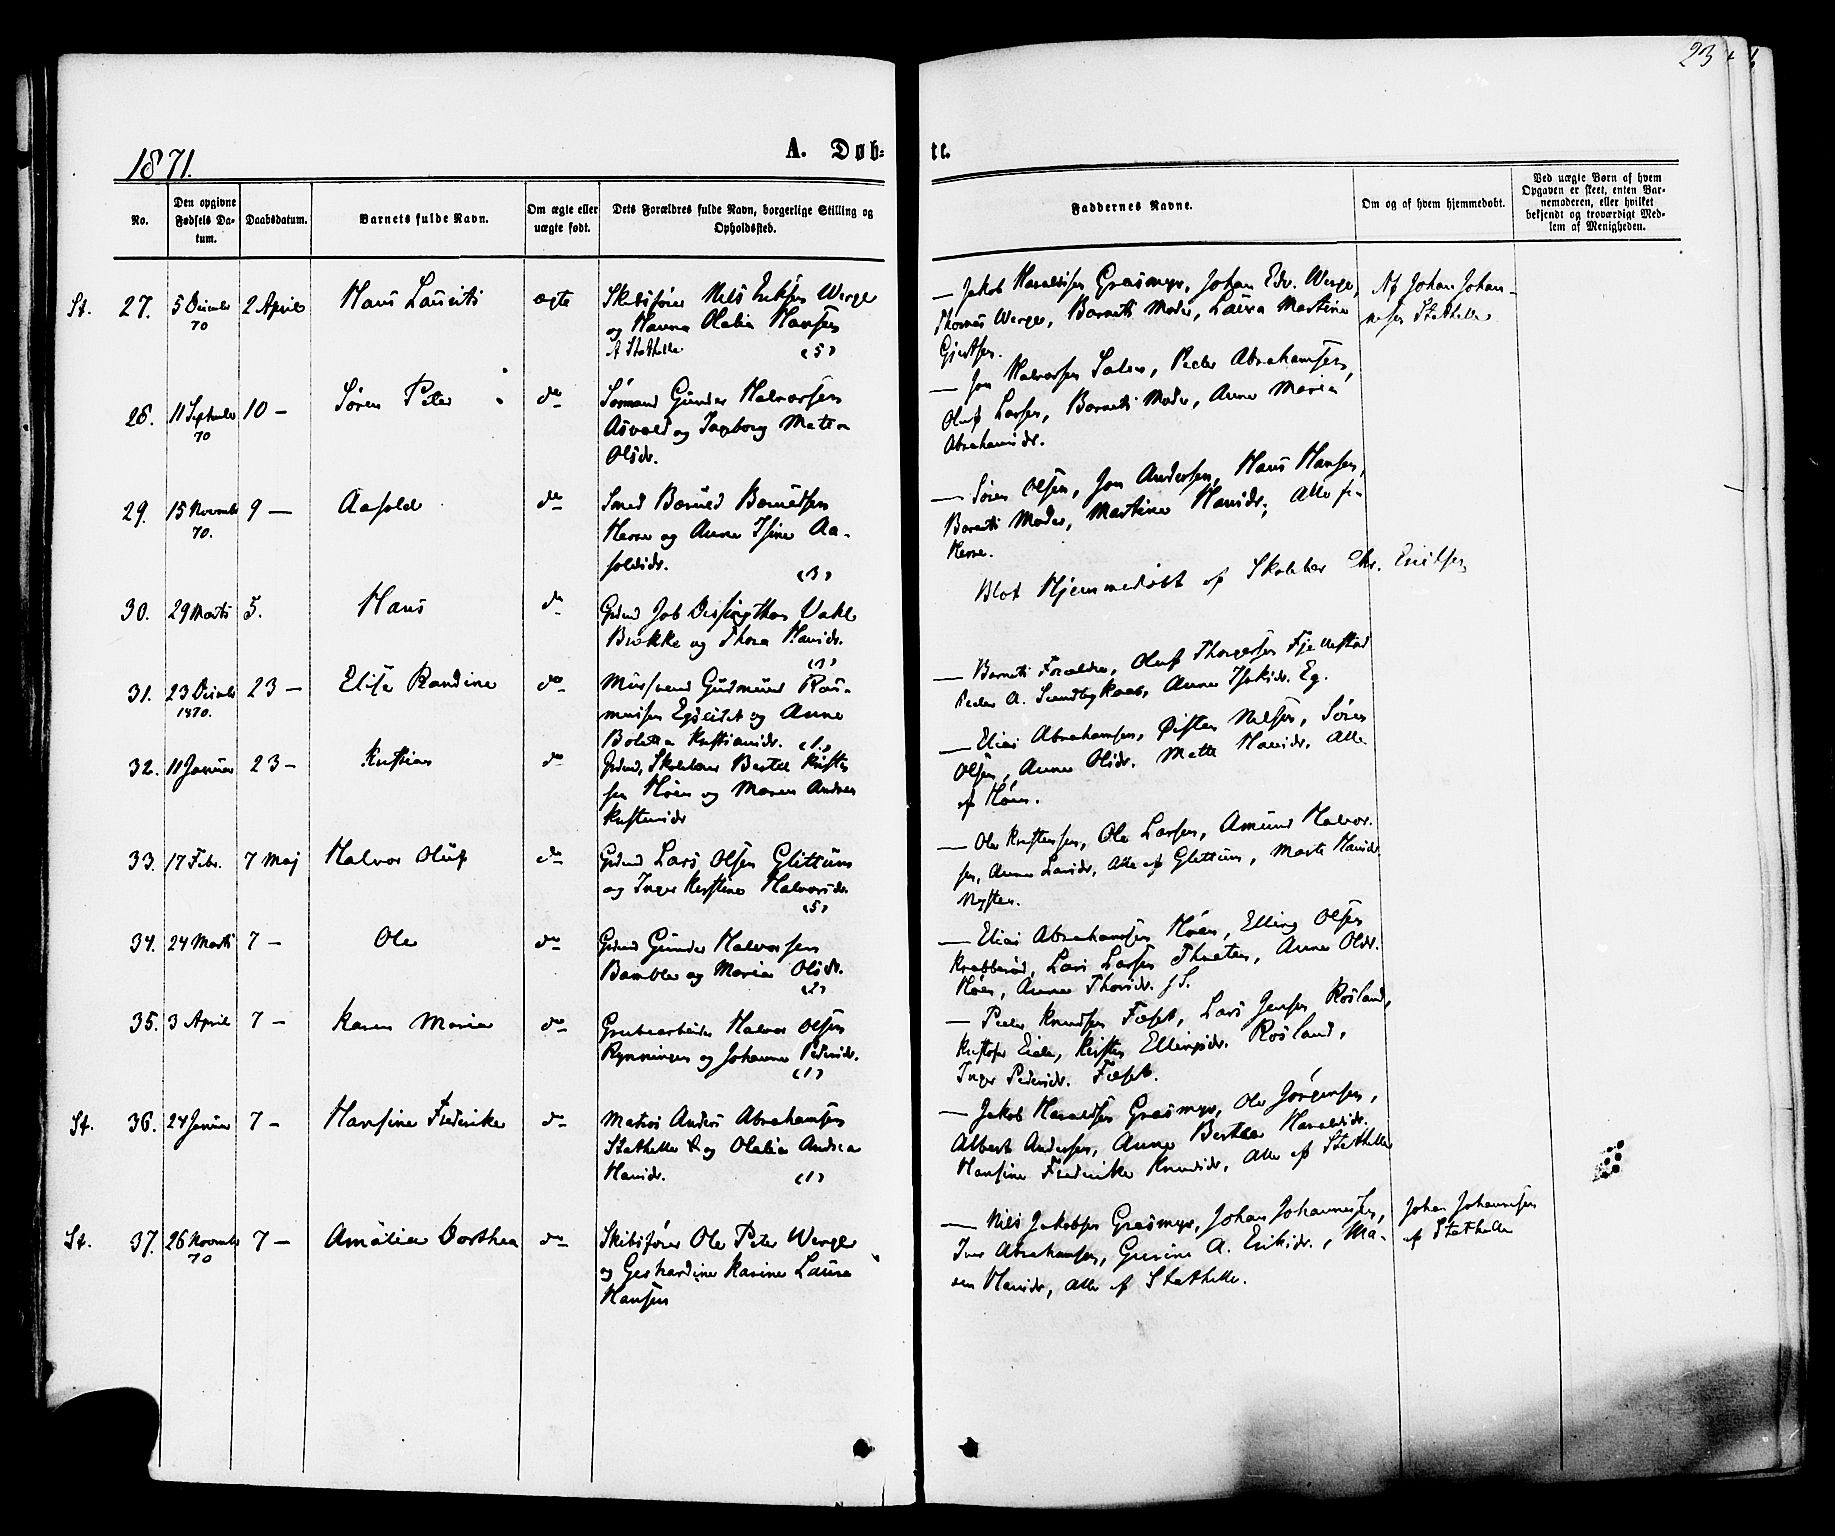 23
1871.
A. Døb-
te.
No.
Den opgivne Fødsels Da-
tum.
Daabsdatum.
Barnets fulde Navn.
Om ægte eller
uægte født.
Dets Forældres fulde Navn, borgerlige Stilling og
Opholdssted.
Faddernes Navne.
Om og af hvem hjemmedøbt.
Ved uægte Børn af hvem
Opgaven er skeet, enten Bar-
nemoderen, eller hvilket
bekjendt og troværdigt Med-
lem af Menigheden.
St. 27. 5 Decembr 70 2 April Hans Laurits ægte
Skibsfører Nils Eriksen Werge
og Hanna Olalia Hansen
af Stathelle (5)
— Jakob Haraldsen Grasmyr, Johan Edv. Werge,
Thomas Werge, Barnets Moder, Laura Martine
Gjertsen.
Af Johan Johan-
nesen Stathelle
28. 11 Septembr 70 10 — Søren Peter do
Sømand Gunder Halvorsen
Asvald og Ingborg Mathea
Olsdr.
— Jon Halvorsen Salen, Peder Abrahamsen,
Oluf Larsen, Barnets Moder, Anne Maria
Abrahamsdr.
29. 15 Novembr 70. 9 — Aasold do
Smed Baruld Baruldsen
Herre og Anne Isine Aa-
soldsdr. (3)
— Søren Olsen, Jon Andersen, Hans Hansen,
Barnets Moder, Martine Hansdr, Alle fr
Herre.
30. 29 Marts 5. Hans do
Grdmd Job Dissingthon Vahl
Brekke og Thora Hansdr.
(1)
Blot Hjemmedøbt af Skolelær Chr. Eriksen
31. 23 Decembr 1870. 23 — Elise Randine do
Muursvend Gudmund Ras-
mussen Egsletet og Anne
Boletta Kristiansdr. (1.)
— Barnets Forældre, Oluf Thorgersen Fjellestad
Peder A. Sundbykaas, Anne Isaksdr. Eg.
32. 11 Januar 23 — Kristian do
Grdmd, Skolelærer Bertel Kristen
sen Höen og Maren Andrea
Kristensdr
— Elias Abrahamsen, Øisten Nilsen, Søren
Olsen, Anne Olsdr. Mette Hansdr, Alle
af Höen.
33. 17 Febr. 7 Maj Halvor Oluf do
Grdmd Lars Olsen Glittum
og Inger Kirstine Halvorsdr.
(5)
— Ole Kristensen, Ole Larsen, Amund Halvor-
sen, Anne Larsdr, Alle af Glittum, Marte Hansdr.
Nysten.
34. 24 Marts 7 — Ole do
Grdmd Gunder Halvorsen
Bamble og Maria Olsdr.
(2)
— Elias Abrahamsen Höen, Elling Olsen
Krabberød, Lars Larsen Thraaten, Anne Olsdr.
Höen, Anne Thorsdr. f S.
35. 3 April 7 — Karen Maria do
Grubearbeider Halvor Olsen
Rynningen og Johanne Pedersdr.
(1)
— Peder Knudsen Fæset, Lars Jensen Rosland,
Kristofer Eide, Kirsten Ellingsdr. Rosland,
Inger Pedersdr. Fæset.
St. 36. 24 Januar 7 — Hansine Frederikke do
Matros Anders Abrahamsen
Stathelle og Olalia Andrea
Hansdr. (1)
— Jakob Haraldsen Grasmyr, Ole Jörgensen,
Albert Andersen, Anne Berthe Haraldsdr.
Hansine Frederikke Knudsdr, Alle af Stathelle
St. 37. 26 Novembr 70 7 — Amalia Dorthea do
Skibsfører Ole Peter Werge
og Gerhardine Karine Laura
Hansen
— Nils Jakobsen Grasmyr, Johan Johannesen,
Iver Abrahamsen, Gurine A. Eriksdr., Ma-
ren Hansdr, Alle af Stathelle.
Johan Johannesen
af Stathelle